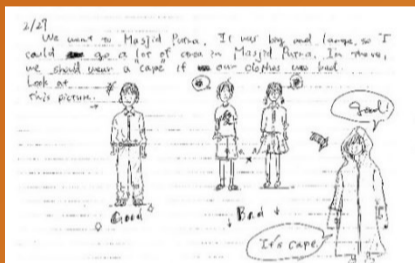 2/27
We went to Masjid Putra. It was big and large, so I
could go a lot of area in Masjid Putra. In there,
we should wear a cape if our clothes was bad.
Look at
this picture.
Good
Bad
Good!
It's cape.